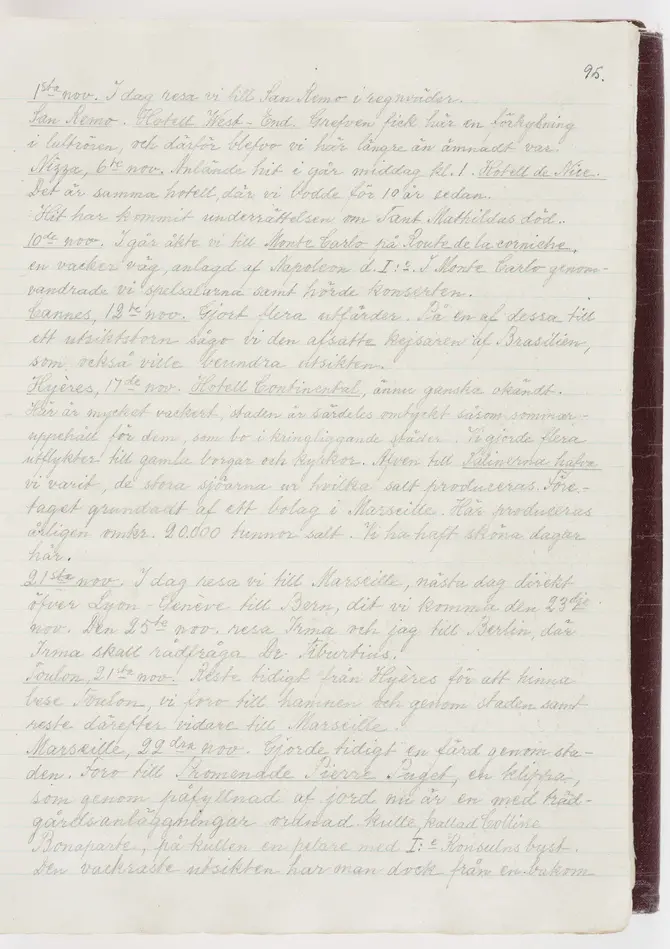 95.
1sta nov. I dag resa vi till San Remo i regnväder.
San Remo. Hotell West-End. Grefven fick här en förkylning
i luftrören, och därför blefvo vi här längre än ämnadt var.
Nizza, 6te nov. Anlände hit i går middag kl. 1. Hotell de Nice.
Det är samma hotell, där vi bodde för 10 år sedan.
Hit har kommit underrättelsen om Tant Mathildas död.
10de nov. I går åkte vi till Monte Carlo på Route de la corniche,
en vacker väg, anlagd af Napoleon d. I:e. I Monte Carlo genom-
vandrade vi spelsalarna samt hörde konserten.
Cannes, 12te nov. Gjort flera utfärder. På en af dessa till
ett utsiktstorn sågo vi den afsatte kejsaren af Brasilien,
som också ville beundra utsikten.
Hyères, 17de nov. Hotell Continental, ännu ganska okändt.
Här är mycket vackert, staden är särdeles omtyckt såsom sommar-
uppehåll för dem, som bo i kringliggande städer. Vi gjorde flera
utflykter till gamla borgar och kyrkor. Äfven till Salinerna hafva
vi varit, de stora sjöarna ur hvilka salt produceras. Före-
taget grundadt af ett bolag i Marseille. Här produceras
årligen omkr. 20.000 tunnor salt. Vi ha haft sköna dagar
här.
21sta nov. I dag resa vi till Marseille, nästa dag direkt
öfver Lyon-Genève till Bern, dit vi komma den 23dje
nov. Den 25te nov. resa Irma och jag till Berlin, där
Irma skall rådfråga Dr Tiburtius.
Toulon, 21sta nov. Reste tidigt från Hyères för att hinna
bese Toulon, vi foro till hamnen och genom staden samt
reste därefter vidare till Marseille.
Marseille, 22dra nov. Gjorde tidigt en färd genom sta-
den. Foro till Promenade Pierre Puget, en klippa,
som genom påfyllnad af jord nu är en med träd-
gårdsanläggningar ordnad kulle, kallad Colline
Bonaparte, på kullen en pelare med I:e Konsulns byst.
Den vackraste utsikten har man dock från en bakom